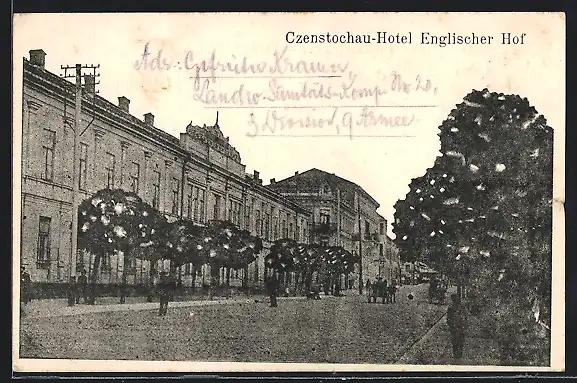 Czenstochau-Hotel Englischer Hof
Adr.: Gefreiter Kramer
Landw. Sanitäts-Komp. No 20,
3 Division, 9 Armee